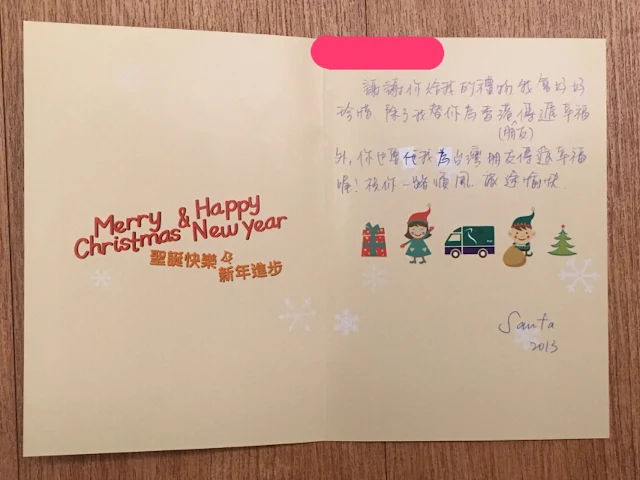 Merry & Happy
Christmas New Year
聖誕快樂&
新年進步
謝謝你給我的禮物我會好好
珍惜 除了我替你為香港傳遞幸福
(朋友)
外,你也要代我為台灣朋友傳遞幸福
喔!祝你一路順風 旅途愉快
Santa
2013